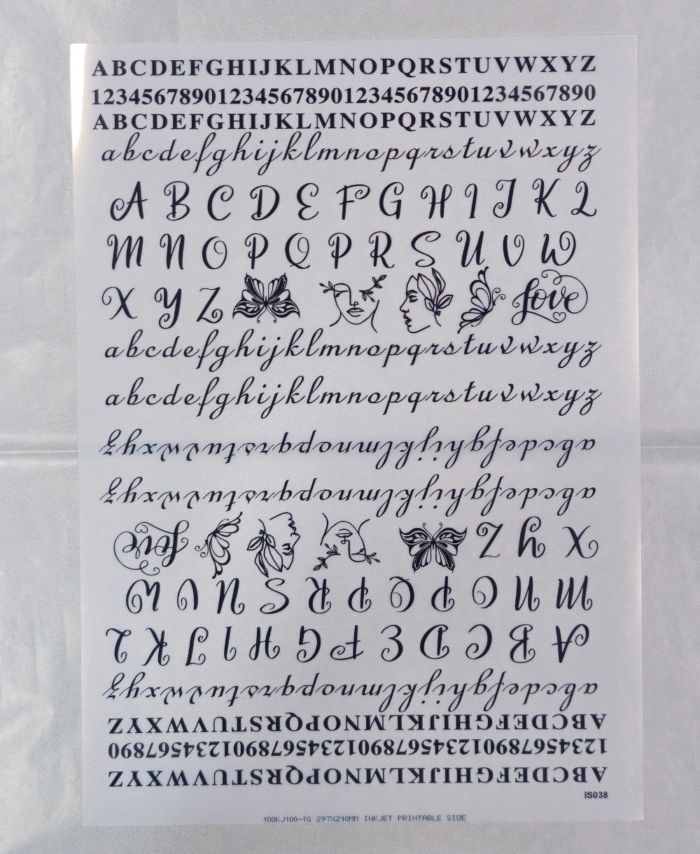 ABCDEFGHIJKLMNOPQRSTUVWXYZ
1234567890123456789012345678901234567890
ABCDEFGHIJKLMNOPQRSTUVWXYZ
abcdefghijklmnopqrstuvwxyz
A B C D E F G H I J K L
M N O P Q P R S U V W
X Y Z love
abcdefghijklmnopqrstuvwxyz
abcdefghijklmnopqrstuvwxyz
abcdefghijklmnopqrstuvwxyz
abcdefghijklmnopqrstuvwxyz
X Y Z love
M N O P Q P R S U V W
A B C D E F G H I J K L
abcdefghijklmnopqrstuvwxyz
ABCDEFGHIJKLMNOPQRSTUVWXYZ
1234567890123456789012345678901234567890
ABCDEFGHIJKLMNOPQRSTUVWXYZ
IS038
100KJ100-1S 297X210MM INKJET PRINTABLE SIDE